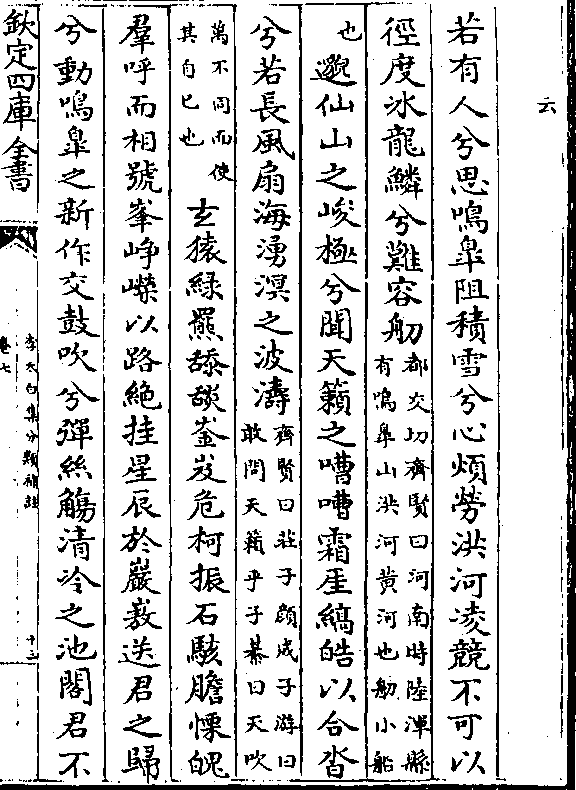 云
若有人兮思鳴臯阻積雪兮心煩勞洪河凌競不可以
徑度冰龍鱗兮難容舠
都交切齊賢曰河南時陸渾縣
有鳴臯山洪河黃河也舠小船
也
邈仙山之峻極兮聞天籟之嘈嘈霜崖縞皓以合沓
兮若長風扇海湧溟之波濤
齊賢曰莊子顔成子游曰
敢問天籟乎子綦曰天吹
萬不同而使
其自已也
玄猿綠羆舔舕崟岌危柯振石駭膽慄魄
羣呼而相號峯崢嶸以路絶挂星辰於巖嶅送君之歸
兮動鳴臯之新作交鼓吹兮彈絲觴清泠之池閣君不
欽定四庫全書
李太白集分類補註
卷七
十三